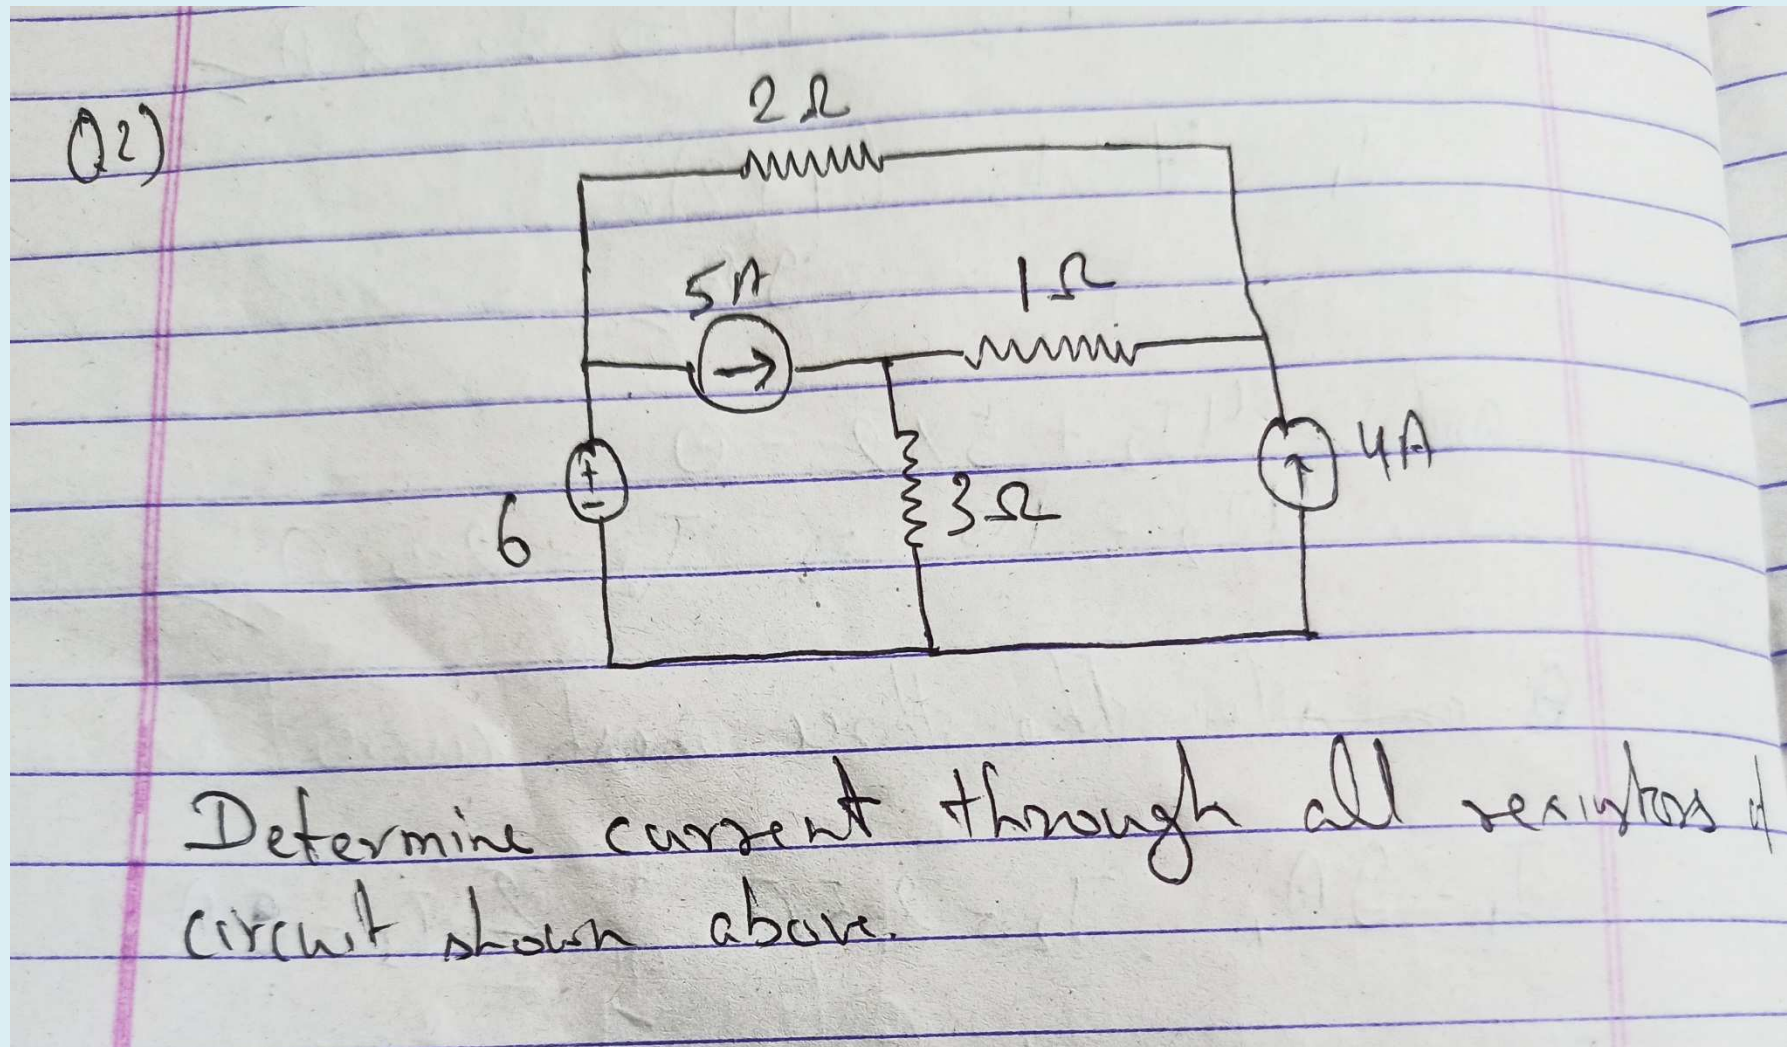 Q2)
2Ω
5A
1Ω
+
4A
3Ω
6
Determine current through all resistors of
circuit shown above.